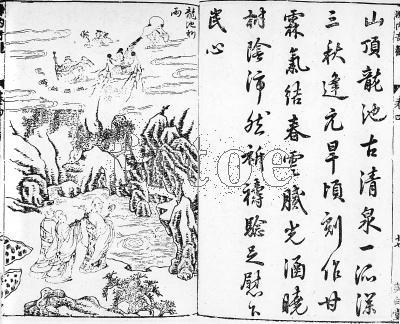 山頂龍池古清泉一派深
三秋逢亢旱頃刻作甘
霖氣結春雲膩光涵曉
樹陰沛然祈禱驗足慰下
民心
龍池祈
雨